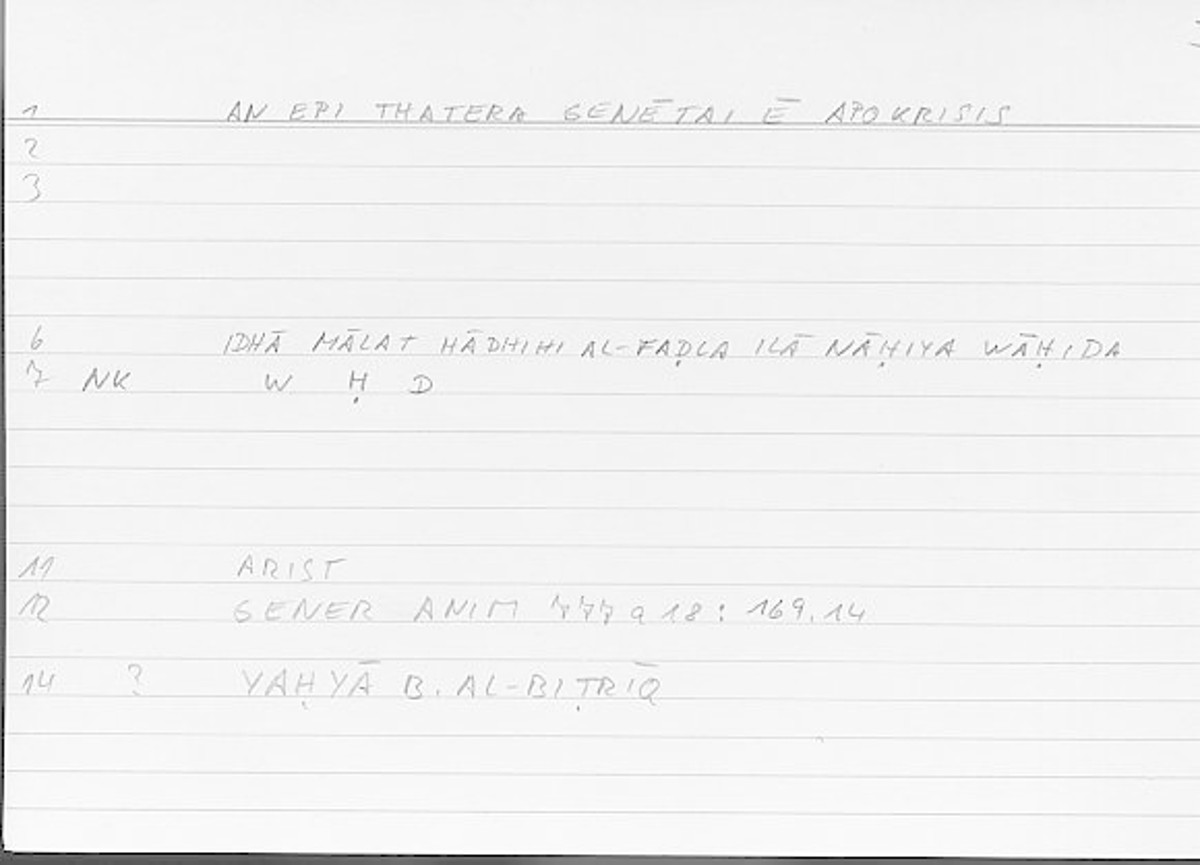 1 AN EPI THATERA GENĒTAI Ē APOKRISIS
2
3
6 IDHĀ MĀLAT HĀDHIHI AL-FAḌLA ILĀ NĀḤIYA WĀḤIDA
7 NK W Ḥ D
11 ARIST
12 GENER ANIM 777 a 18 : 169.14
14 ? YAḤYĀ B. AL-BIṬRĪQ